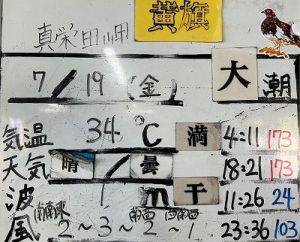 黄旗
真栄田岬
7/19(金) 大潮
気温 34℃ 満 4:11 173
天気 晴/曇 18:21 173
波 1m 干 11:26 24
南南東 南西 西南西
風 2～3～2～1 23:36 103